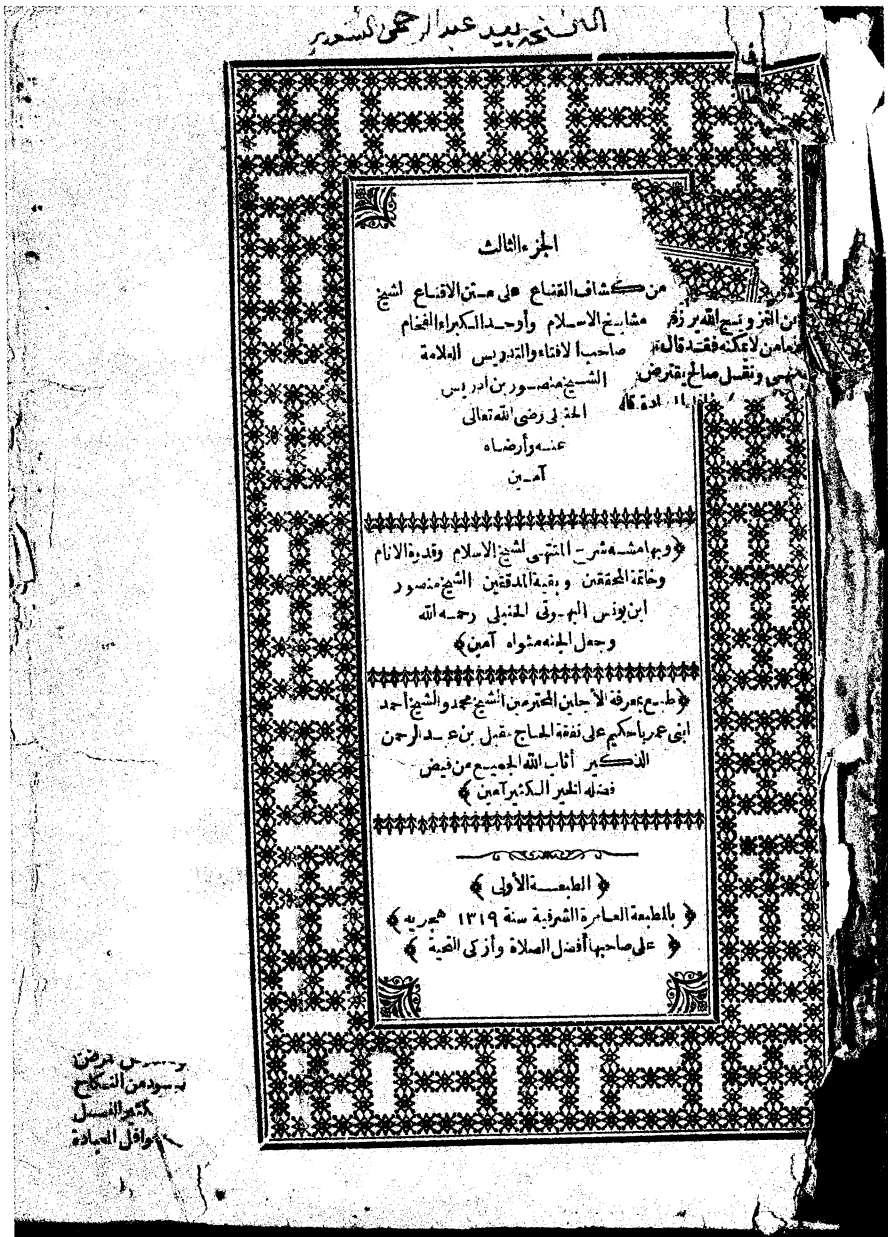 الجزء الثالث
من كشاف القناع على متن الاقناع لشيخ
مشايخ الاسلام وأوحد الكبراء الفخام
صاحب الافتاء والتدريس العلامة
الشيخ منصور بن ادريس
الحنبلى رضى الله تعالى
عنه وأرضاه
آمين
﴿وبهامشه شرح المنتهى لشيخ الاسلام وقدوة الانام
وخاتمة المحققين وبقية المدققين الشيخ منصور
ابن يونس البهوتى الحنبلى رحمه الله
وجعل الجنه مثواه آمين﴾
﴿طبع بمعرفة الأجلين المحترمين الشيخ محمد والشيخ أحمد
ابنى عمر باحكيم على نفقة الحاج مقبل بن عبد الرحمن
الذكير أثاب الله الجميع من فيض
فضله الخير الكثير آمين﴾
﴿الطبعة الأولى﴾
﴿بالمطبعة العامرة الشرفية سنة ١٣١٩ هجريه﴾
﴿على صاحبها أفضل الصلاة وأزكى التحية﴾
من لا يمكنه فقد قال
ونقل صالح يقترض
من النكاح
العبادة